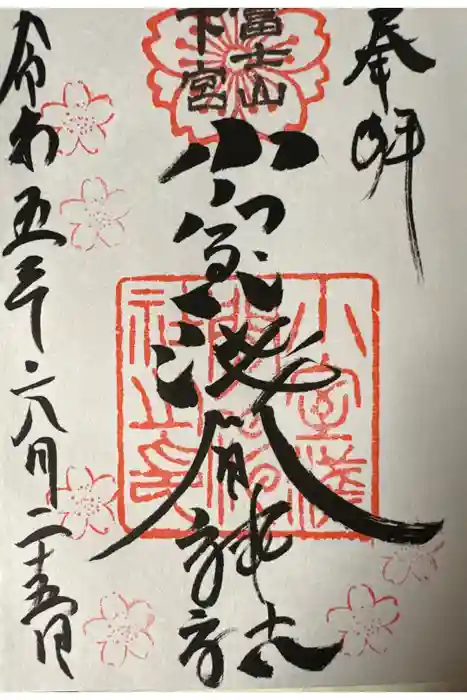 奉拝
富士山
下宮
小室浅間神社
小室浅
間神
社之印
令和五年六月二十五日